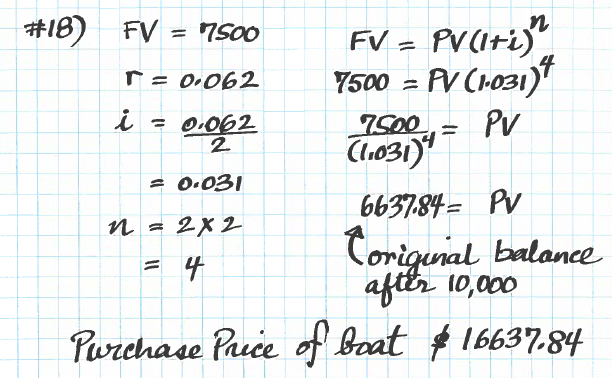 #18) FV = 7500
r = 0.062
i = 0.062/2
= 0.031
n = 2 x 2
= 4
FV = PV(1+i)^n
7500 = PV(1.031)^4
7500/(1.031)^4 = PV
6637.84 = PV
original balance
after 10,000
Purchase Price of boat $ 16637.84